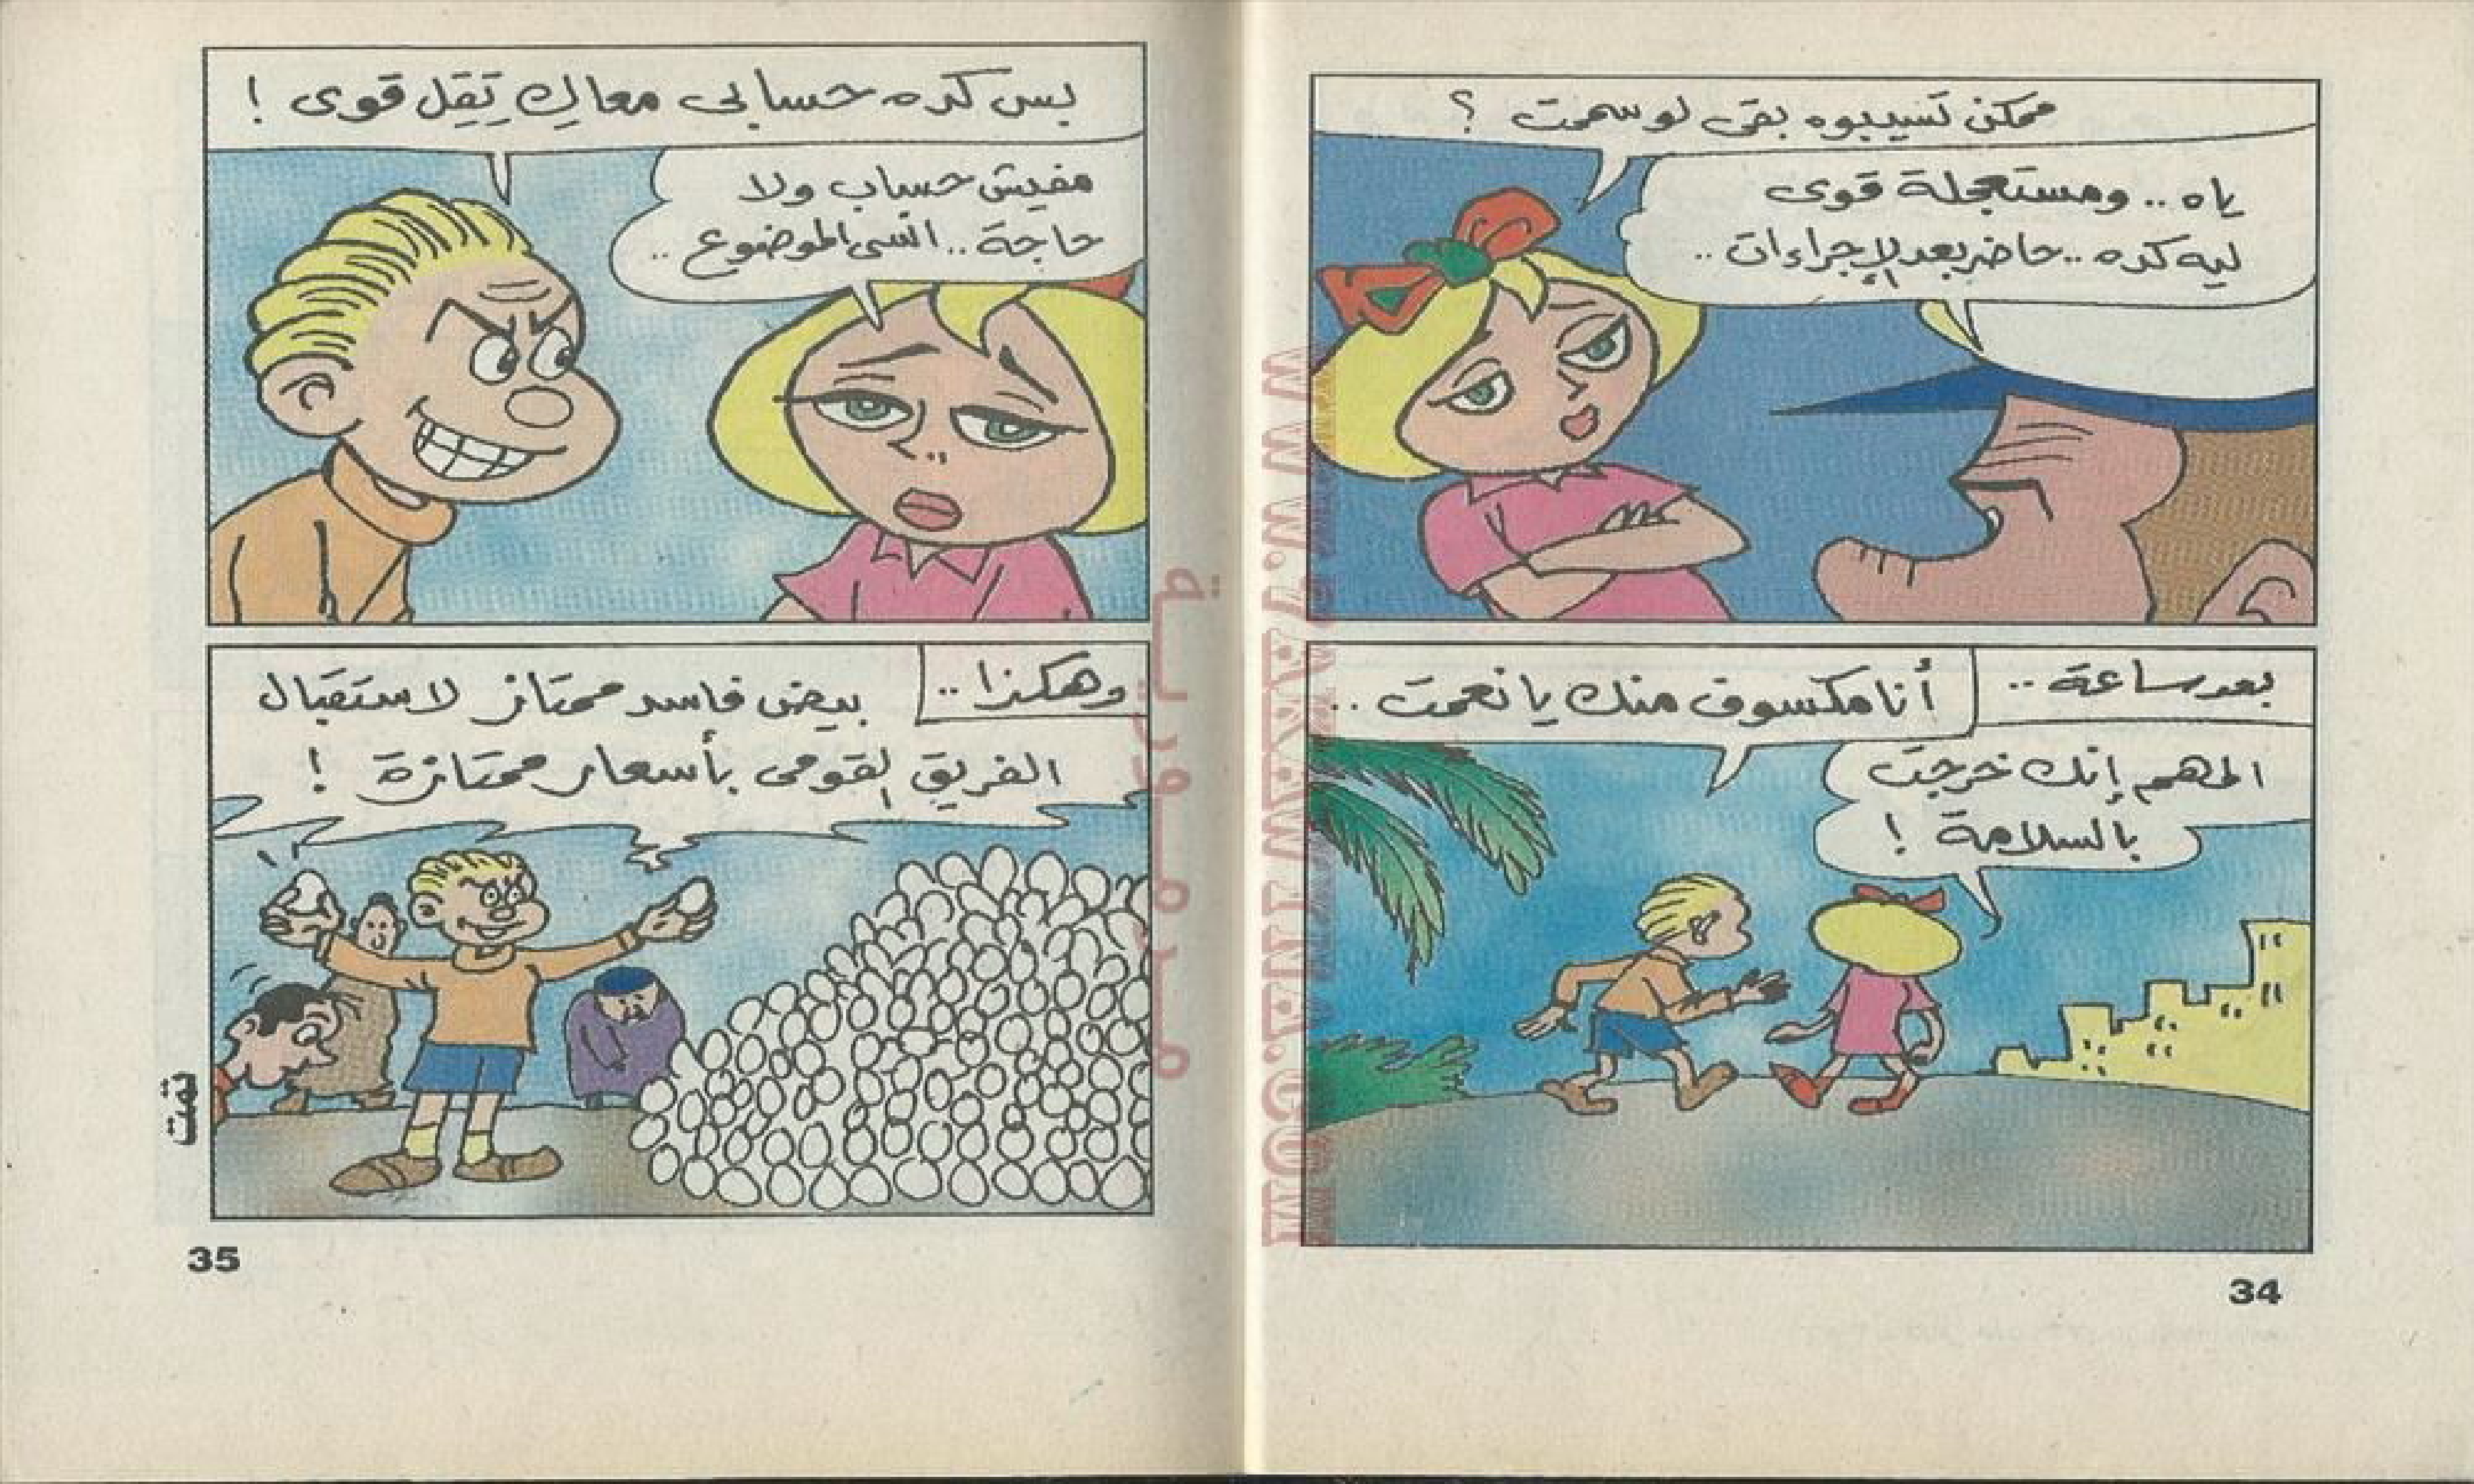 ممكن تسيبوه بقى لو سمحت ؟
ياه .. ومستعجلة قوى
ليه كده .. حاضر بعد الإجراءات ..
بعد ساعة ..
أنا مكسوف منك يا نعمت ..
المهم إنك خرجت
بالسلامة !
34
بس كده حسابى معاكِ تِقِل قوى !
مفيش حساب ولا
حاجة .. انسى الموضوع ..
وهكذا ..
بيض فاسد ممتاز لاستقبال
الفريق القومى بأسعار ممتازة !
تمت
35